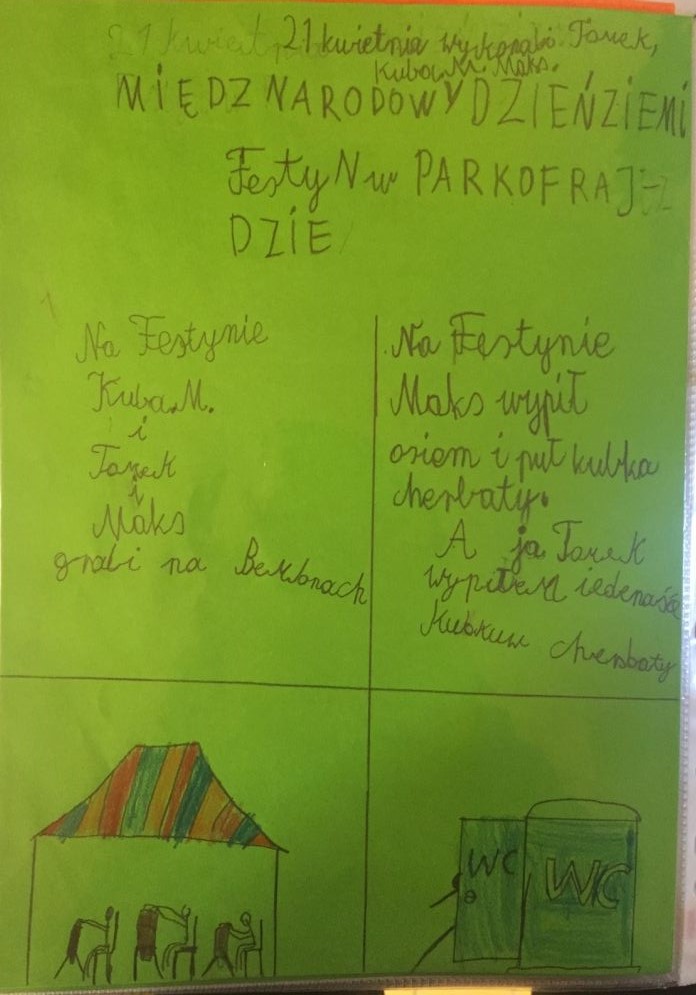 21 kwietnia wykonali Tomek,
Kuba.M. Maks.
MIĘDZNARODOWY DZIEŃ ZIEMI
FestyN w PARKOFRAJ-
DZIE
Na Festynie
Kuba.M.
i
Tomek
i
Maks
grali na Bembnach
Na Festynie
Maks wypił
osiem i puł kubka
cherbaty.
A ja Tomek
wypiłem iedenaśce
Kubkuw cherbaty
WC
WC